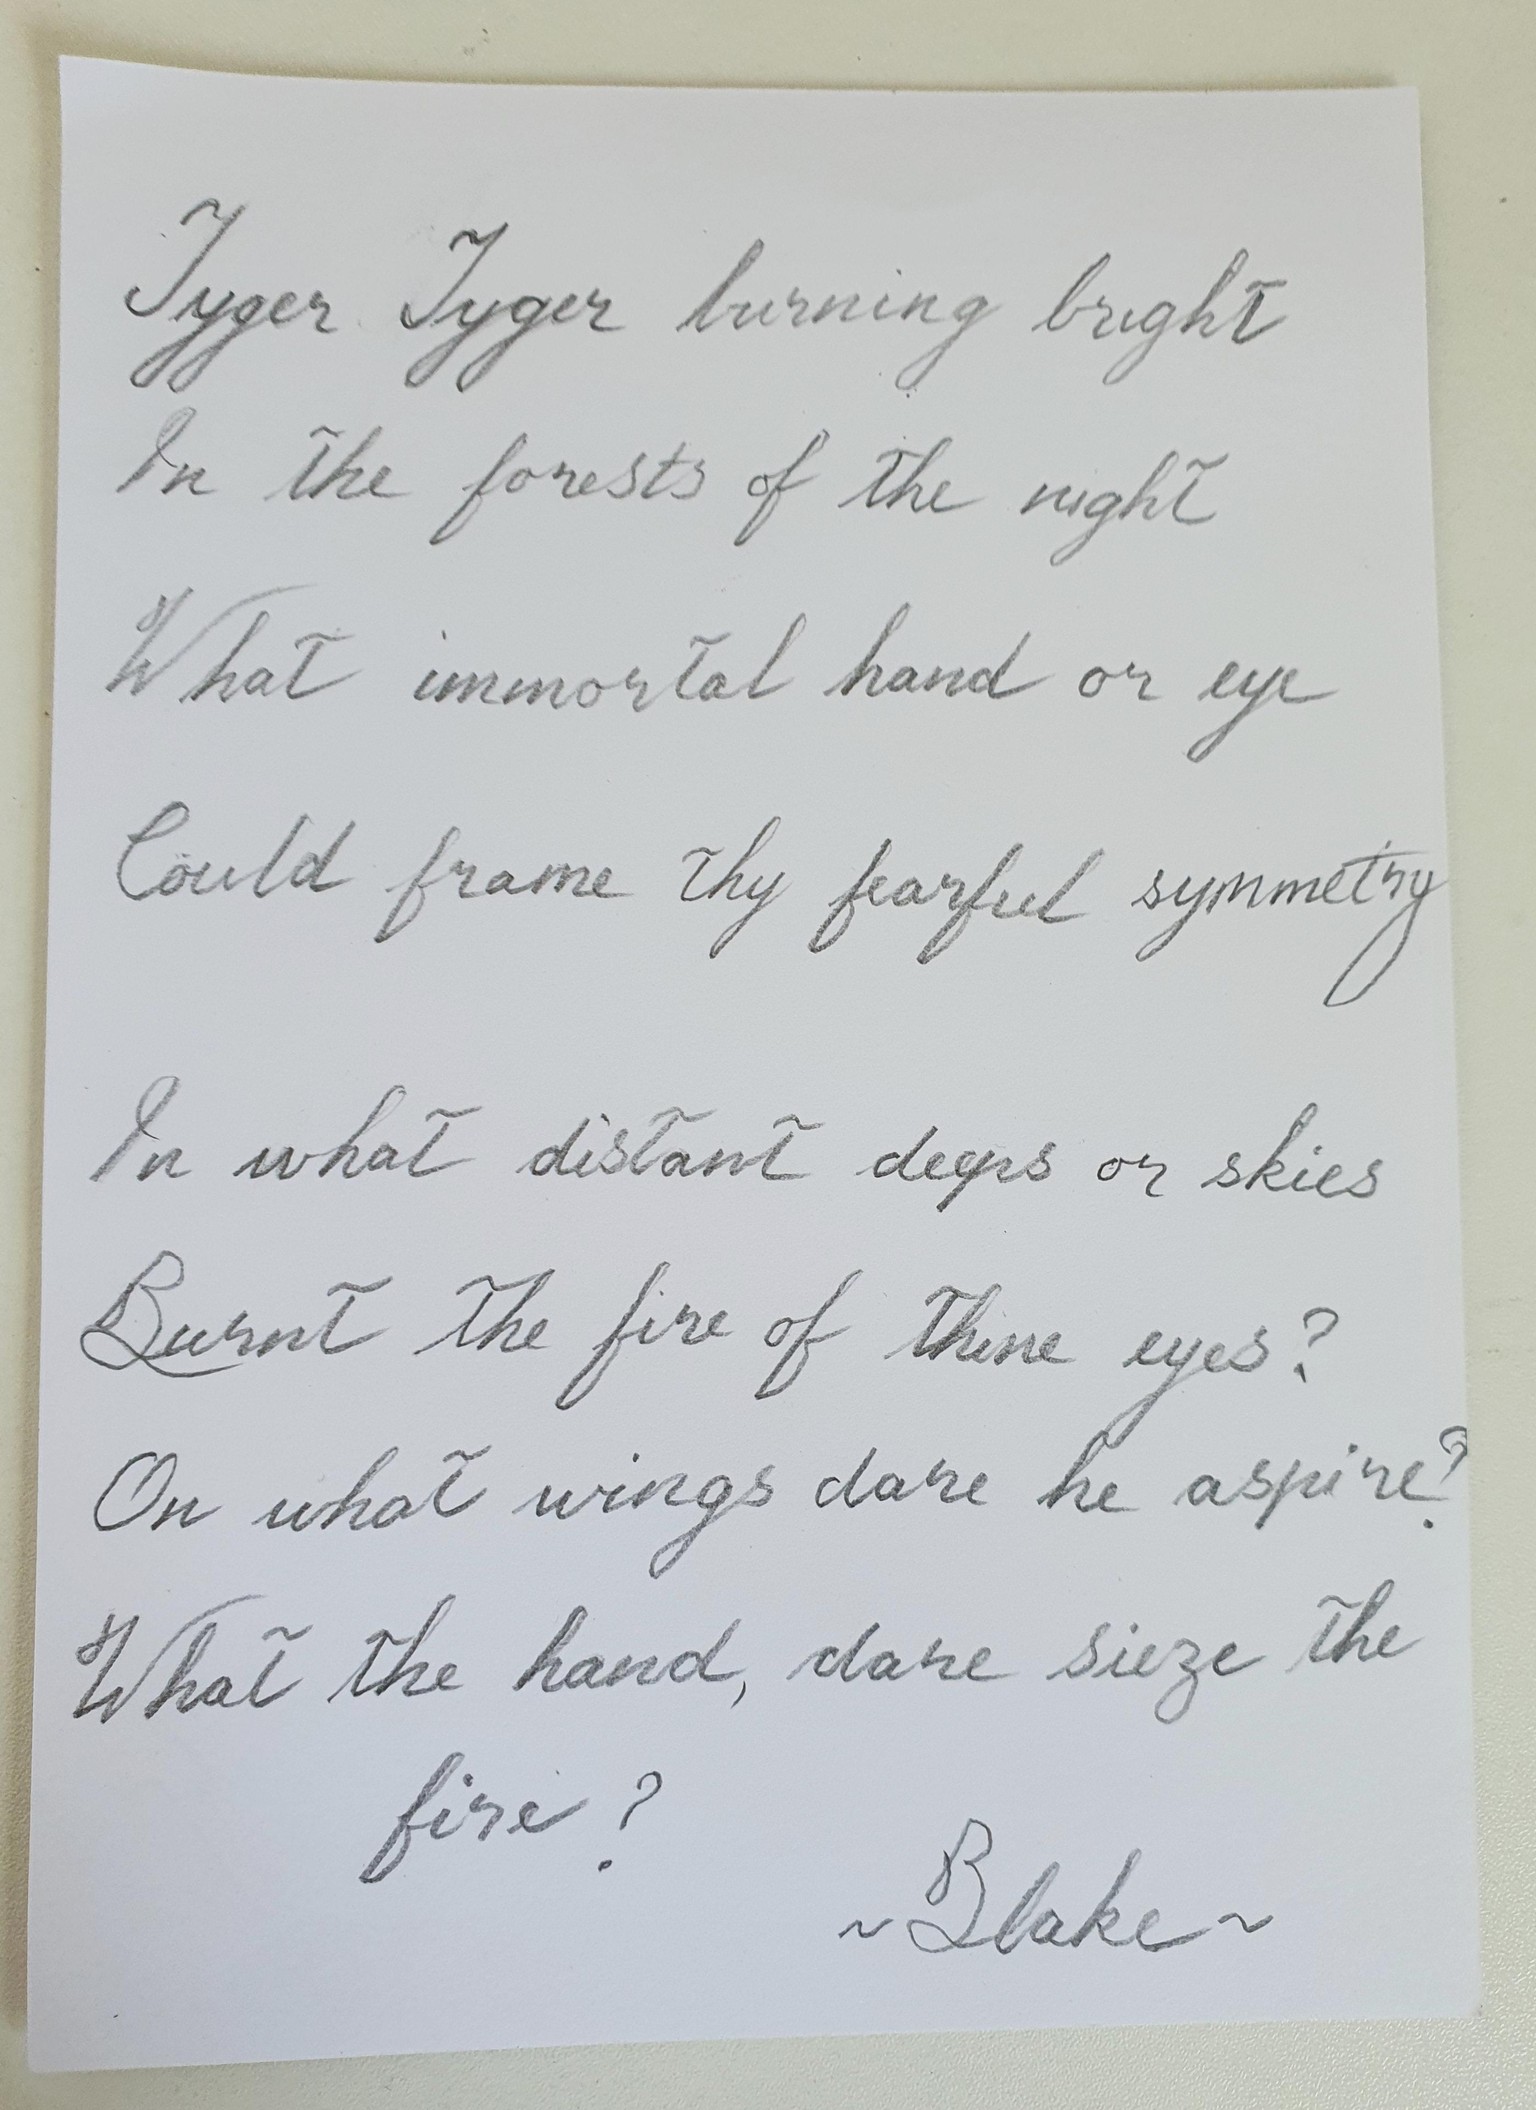 Tyger Tyger burning bright
In the forests of the night
What immortal hand or eye
Could frame thy fearful symmetry
In what distant deeps or skies
Burnt the fire of thine eyes?
On what wings dare he aspire?
What the hand, dare sieze the
fire?
~Blake~